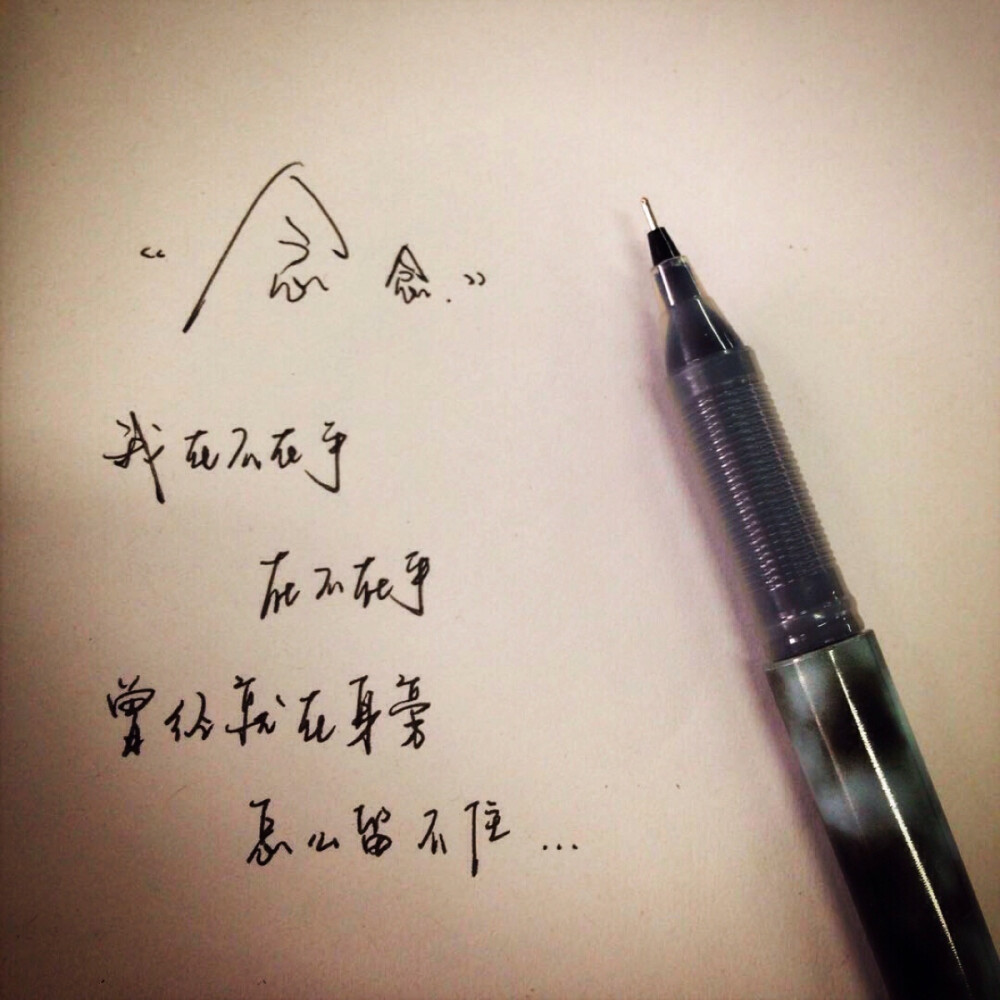 “念念.”
我在不在乎
在不在乎
曾经就在身旁
怎么留不住...